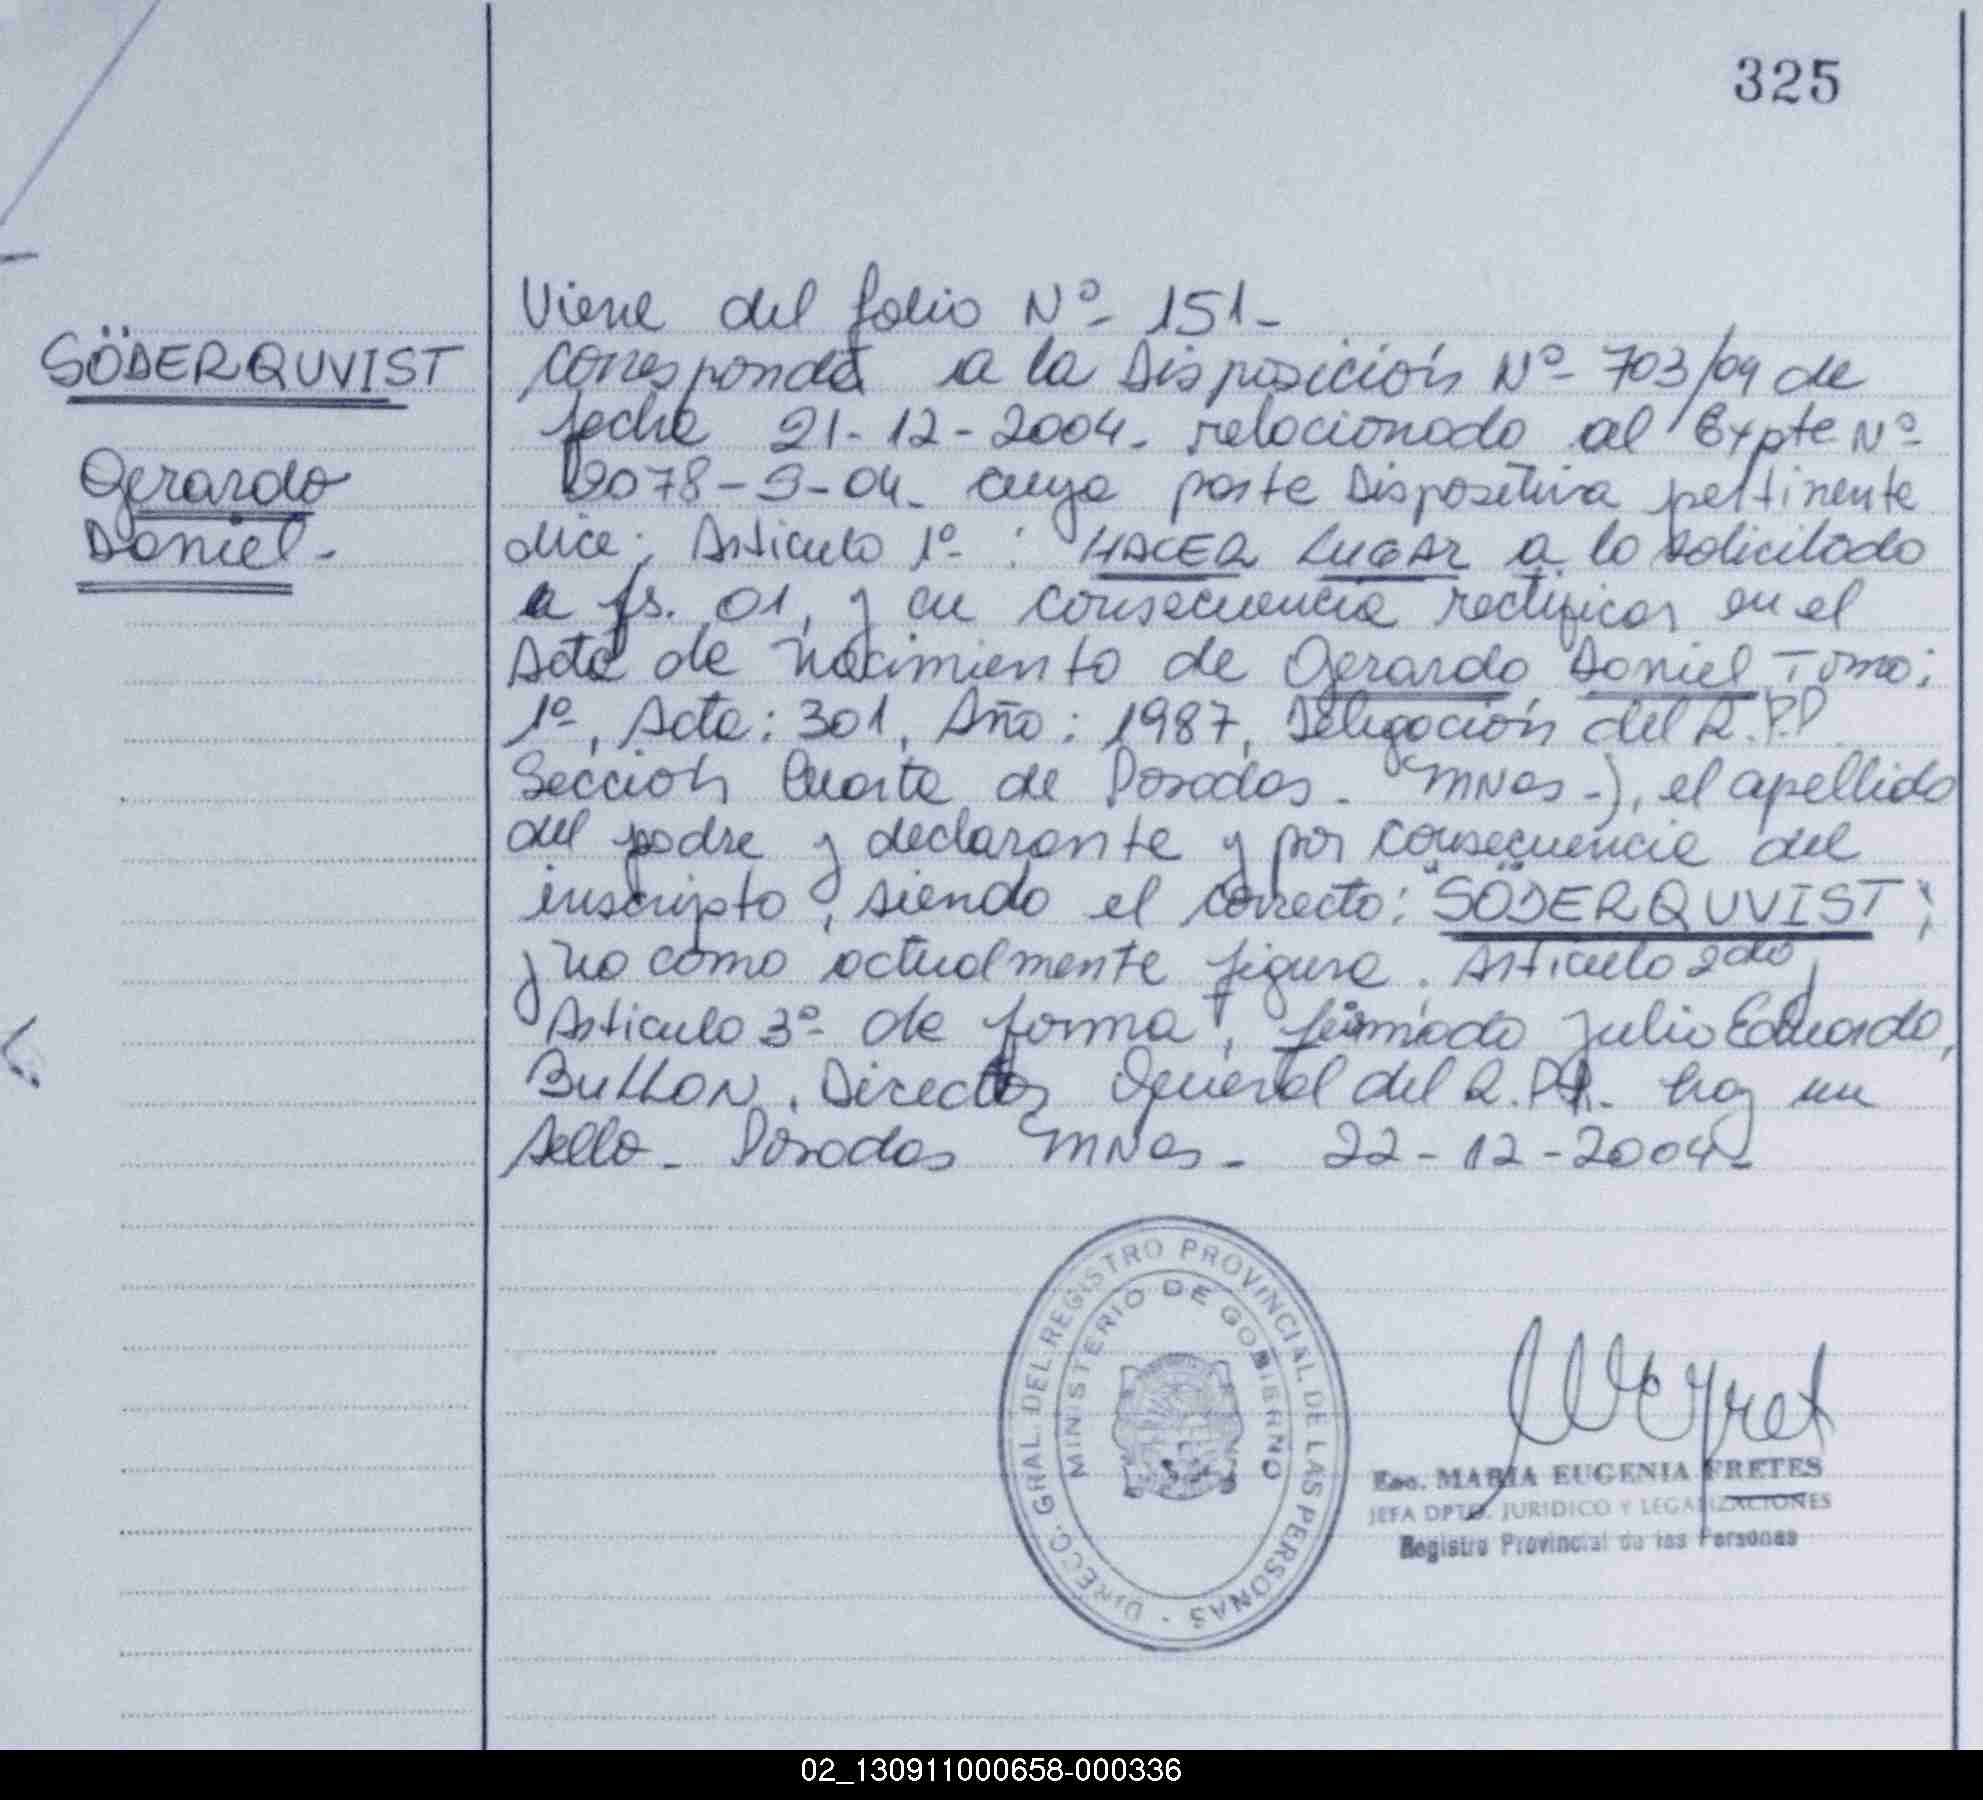 325
SÖDERQUVIST
Gerardo
Daniel-
Viene del folio Nº- 151-
corresponda a la Disposición Nº- 703/04 de
fecha 21-12-2004- relacionado al Expte Nº-
9078-S-04- cuya parte Dispositiva pertinente
dice: Articulo 1º- : HACER LUGAR a lo solicitado
a fs. 01, y en consecuencia rectificar en el
Acta de Nacimiento de Gerardo Daniel Tomo:
1º-, Acta: 301, Año: 1987, Delegación del R.P.P.
Sección Cuarta de Posadas - Mnes-), el apellido
del padre y declarante y por consecuencia del
inscripto, siendo el correcto: "SÖDERQUVIST";
y no como actualmente figura. Articulo 2do y
Articulo 3º- de forma, firmado Julio Eduardo,
BULLON. Director General del R.P.P. hay un
sello- Posadas Mnes- 22-12-2004-
DIRECC. GRAL. DEL REGISTRO PROVINCIAL DE LAS PERSONAS -
MINISTERIO DE GOBIERNO
Esc. MARIA EUGENIA FRETES
JEFA DPTO. JURIDICO Y LEGALIZACIONES
Registro Provincial de las Personas
02_130911000658-000336